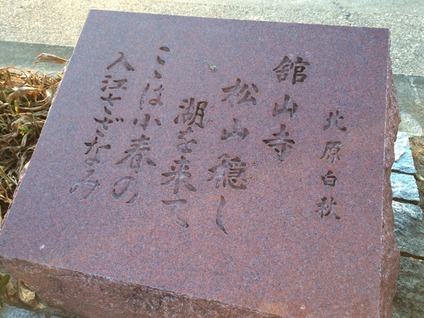 北原白秋
舘山寺
松山隠し
湖を来て
ここは小春の
入江さざなみ